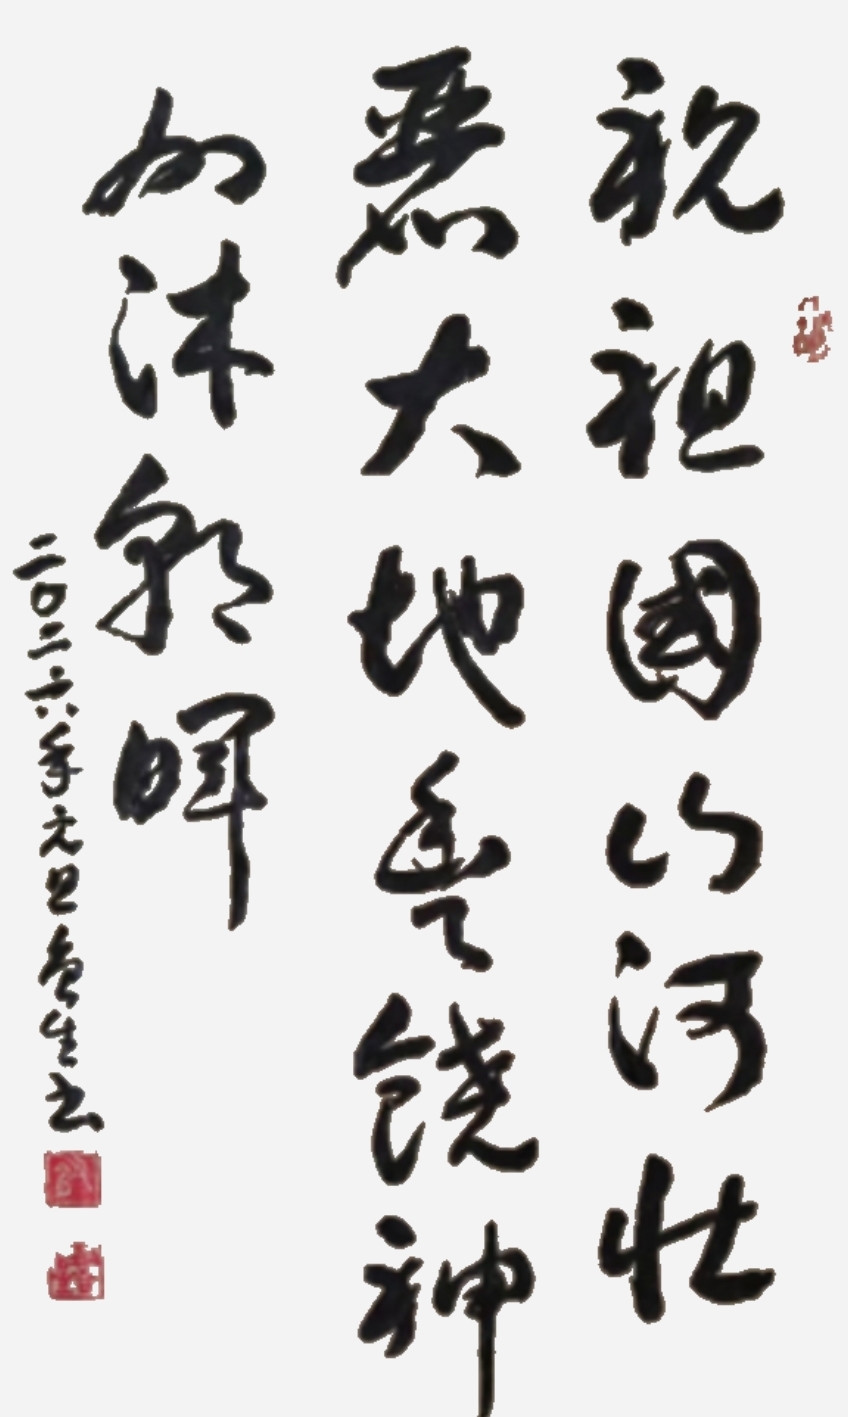 祝祖國山河壮
麗大地豊饒神
州沐朝暉
二〇二六年元旦魯生书